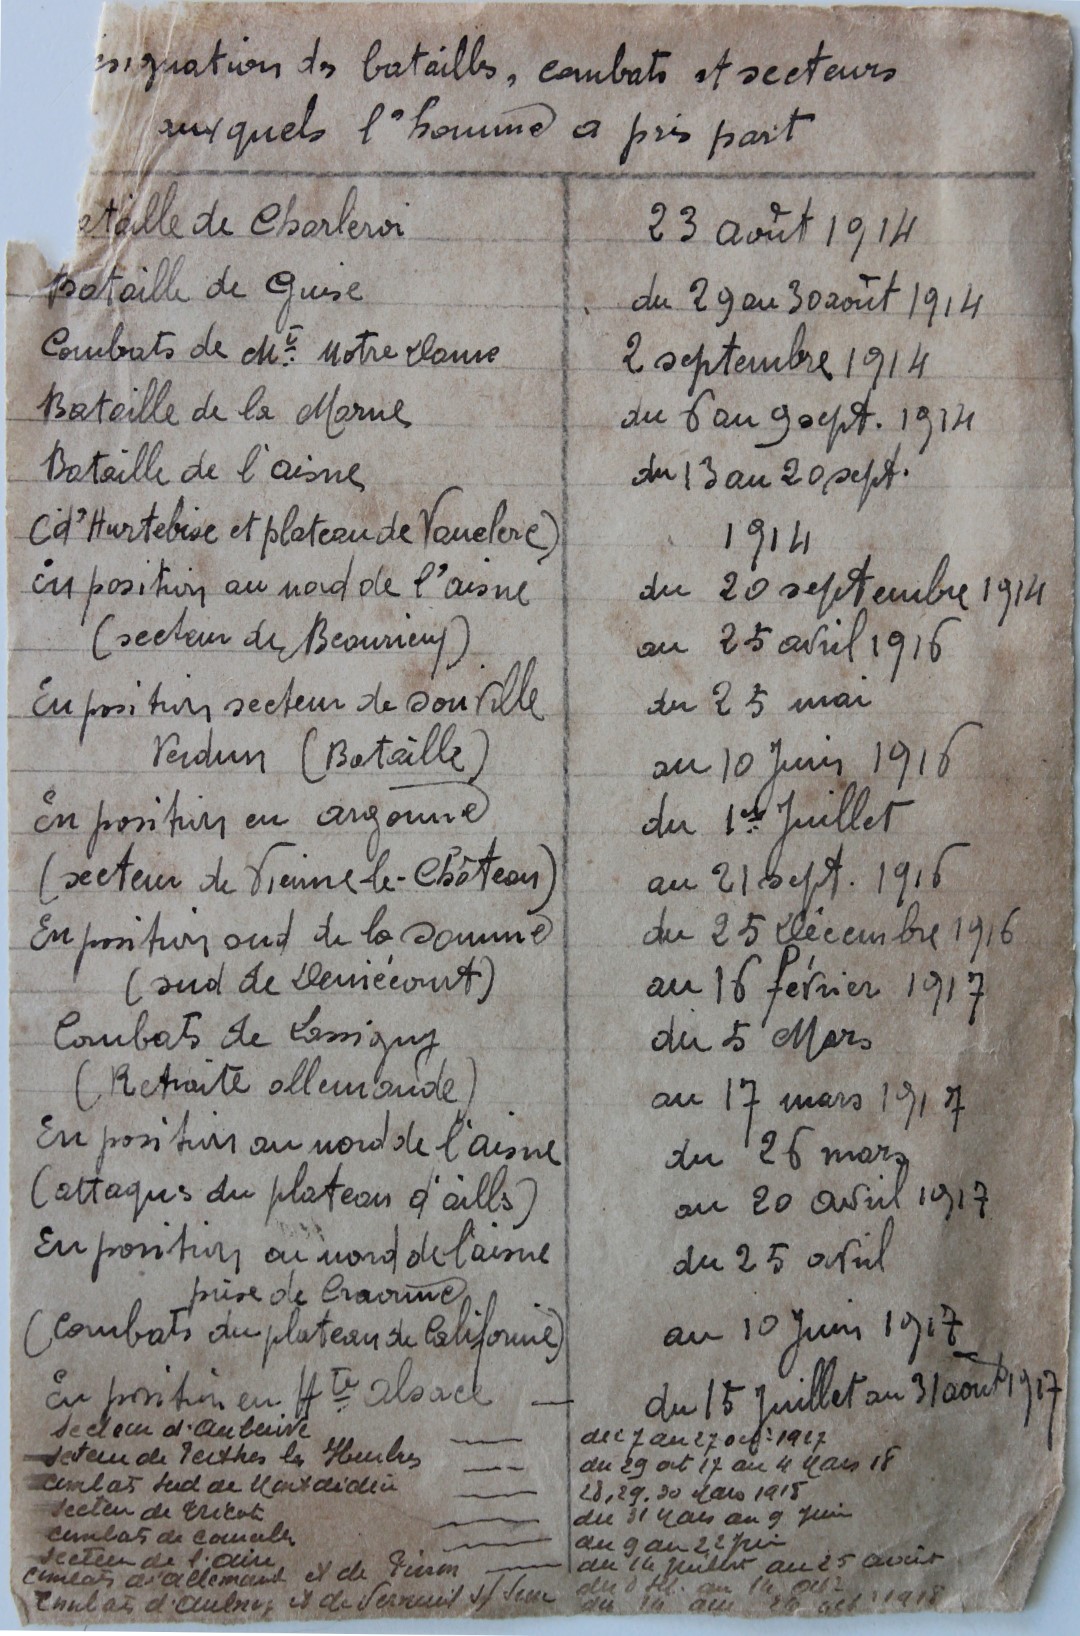 ésignation des batailles, combats et secteurs
auxquels l'homme a pris part
ataille de Charleroi 23 août 1914
Bataille de Guise du 29 au 30 août 1914
Combats de Mt. Notre Dame 2 septembre 1914
Bataille de la Marne du 6 au 9 sept. 1914
Bataille de l'aisne du 13 au 20 sept.
(d'Hurtebise et plateau de Vauclerc) 1914
En position au nord de l'aisne du 20 septembre 1914
(secteur de Beaurieux) au 25 avril 1916
En position secteur de Souville du 25 mai
Verdun (Bataille) au 10 Juin 1916
En position en argonne du 1er Juillet
(secteur de Vienne-le-Château) au 21 sept. 1916
En position sud de la Somme du 25 Décembre 1916
(sud de Deniécourt) au 16 février 1917
Combats de Lassigny du 5 Mars
(Retraite allemande) au 17 mars 1917
En position au nord de l'aisne du 26 mars
(attaques du plateau d'ailles) au 20 avril 1917
En position au nord de l'aisne du 25 avril
prise de Craonne
(Combats du plateau de Californie) au 10 Juin 1917
En position en Hte alsace — du 15 Juillet au 31 août 1917
Secteur d'Auberive — du 7 au 27 oct: 1917
secteur de Perthes les Hurlus — du 29 oct 17 au 4 Mars 18
combats sud de Montdidier — 28, 29, 30 Mars 1918
secteur de Tricot — du 31 Mars au 9 Juin
combats de — du 9 au 22 Juin
secteur de l' — du 14 Juillet au 25 août
combats d'allemant et de Pinon — du au 14 oct:
combats d' et de Verneuil s/ Serre du au oct: 1918